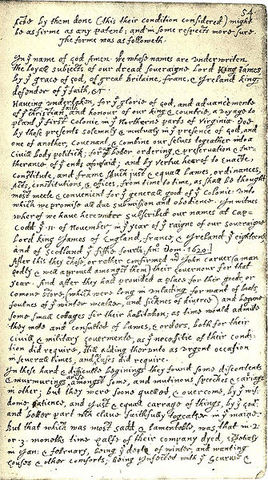 54
first by them done (this their condition considered) might
be as firme as any patent; and in some respects more sure.
The forme was as followeth.
In yͤ name of god Amen. We whose names are underwriten,
the loyall subjects of our dread soveraigne Lord King James
by yͤ grace of god, of great Britaine, franc, & Ireland king,
defender of yͤ faith, &c
Haveing undertaken, for yͤ glorie of god, and advancemente
of yͤ christian faith and honour of our king & countrie, a voyage to
plant yͤ first colonie in yͤ Northerne parts of Virginia. Doe
by these presents solemnly & mutualy in yͤ presence of god, and
one of another, covenant, & combine our selves togeather into a
civill body politick; for our better ordering, & preservation & fur=
therance of yͤ ends aforesaid; and by vertue hearof to enacte,
constitute, and frame shuch just & equall lawes, ordinances,
Acts, constitutions, & offices, from time to time, as shall be thought
most meete & convenient for yͤ generall good of yͤ colonie: unto
which we promise all due submission and obedience. In witnes
wherof we have hereunder subscribed our names at cap=
Codd yͤ .11. of November, in yͤ year of yͤ raigne of our soveraigne
Lord king James of England, france, & Ireland yͤ eighteenth
and of Scotland yͤ fiftie fourth. Ano: Dom. 1620.
After this they chose, or rather confirmed mr John Carver (a man
godly & well approved amongst them) their Governour for that
year. And after they had provided a place for their goods or
comone store, (which were long in unlading for want of boats,
foulnes of yͤ winter weather, and sicknes of diverce) and begune
some small cottages for their habitation; as time would admitte
they mette and consulted of lawes, & orders, both for their
civill & military governmente, as yͤ necessitie of their condi=
tion did require, still adding therunto as urgent occasion
in severall times, and cases did require.
In these hard & difficulte beginings they found some discontents
& murmurings amongst some, and mutinous speeches & cariages
in other; but they were soone quelled, & overcome, by yͤ wis=
dome, patience, and just & equall carrage of things, by yͤ govr
and better part wch clave faithfully togeather in yͤ maine.
But that which was most sadd, & lamentable, was, that in .2.
or .3. moneths time halfe of their company dyed, espetialy
in Jan: & february, being yͤ depth of winter, and wanting
houses & other comforts; being Infected with yͤ Scurvie &